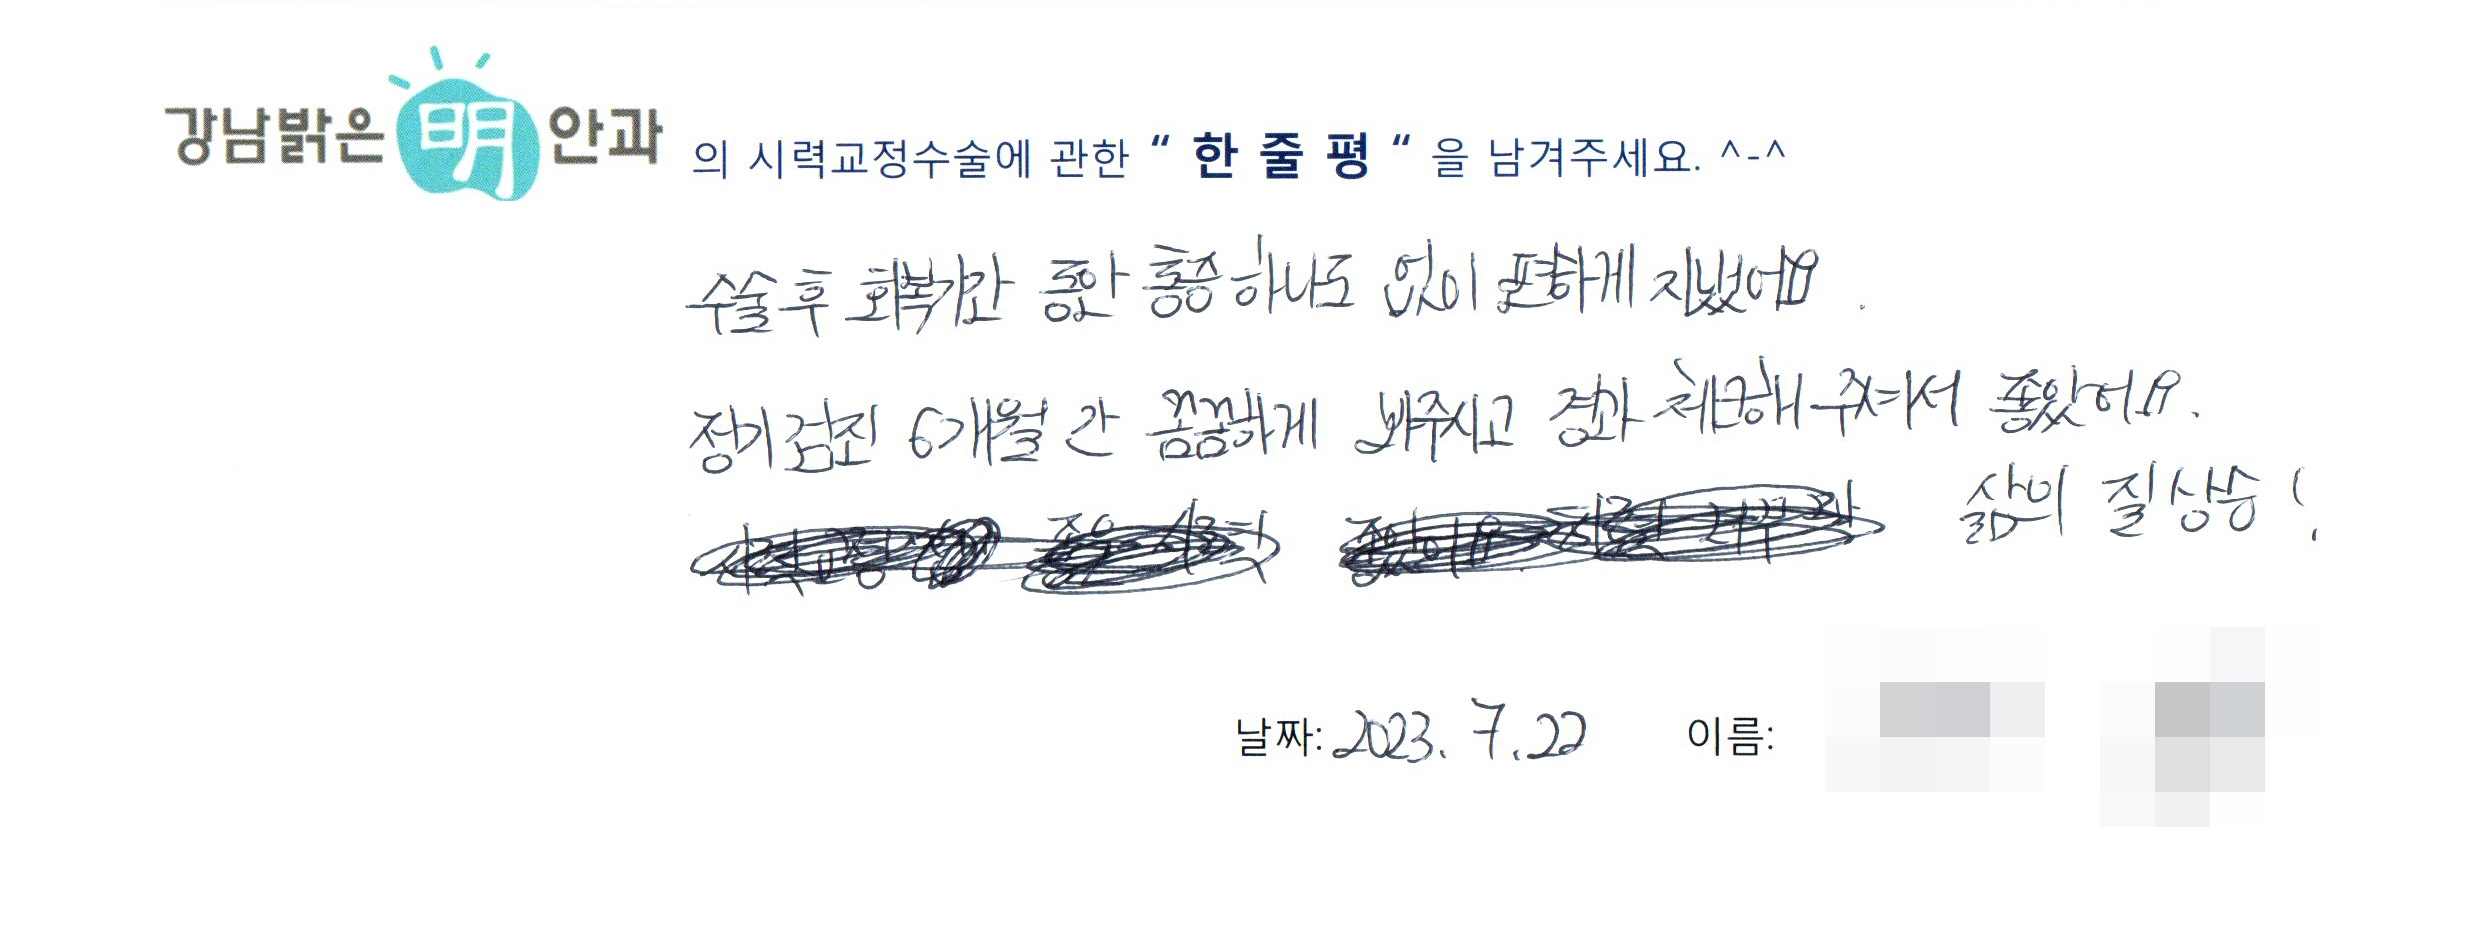 강남밝은 明 안과 의 시력교정수술에 관한 “ 한 줄 평 “ 을 남겨주세요. ^-^
수술 후 회복기간 동안 통증 하나도 없이 편하게 지냈어요.
정기검진 6개월 간 꼼꼼하게 봐주시고 경과 체크해주셔서 좋았어요.
삶의 질 상승!
날짜: 2023. 7. 22 이름: